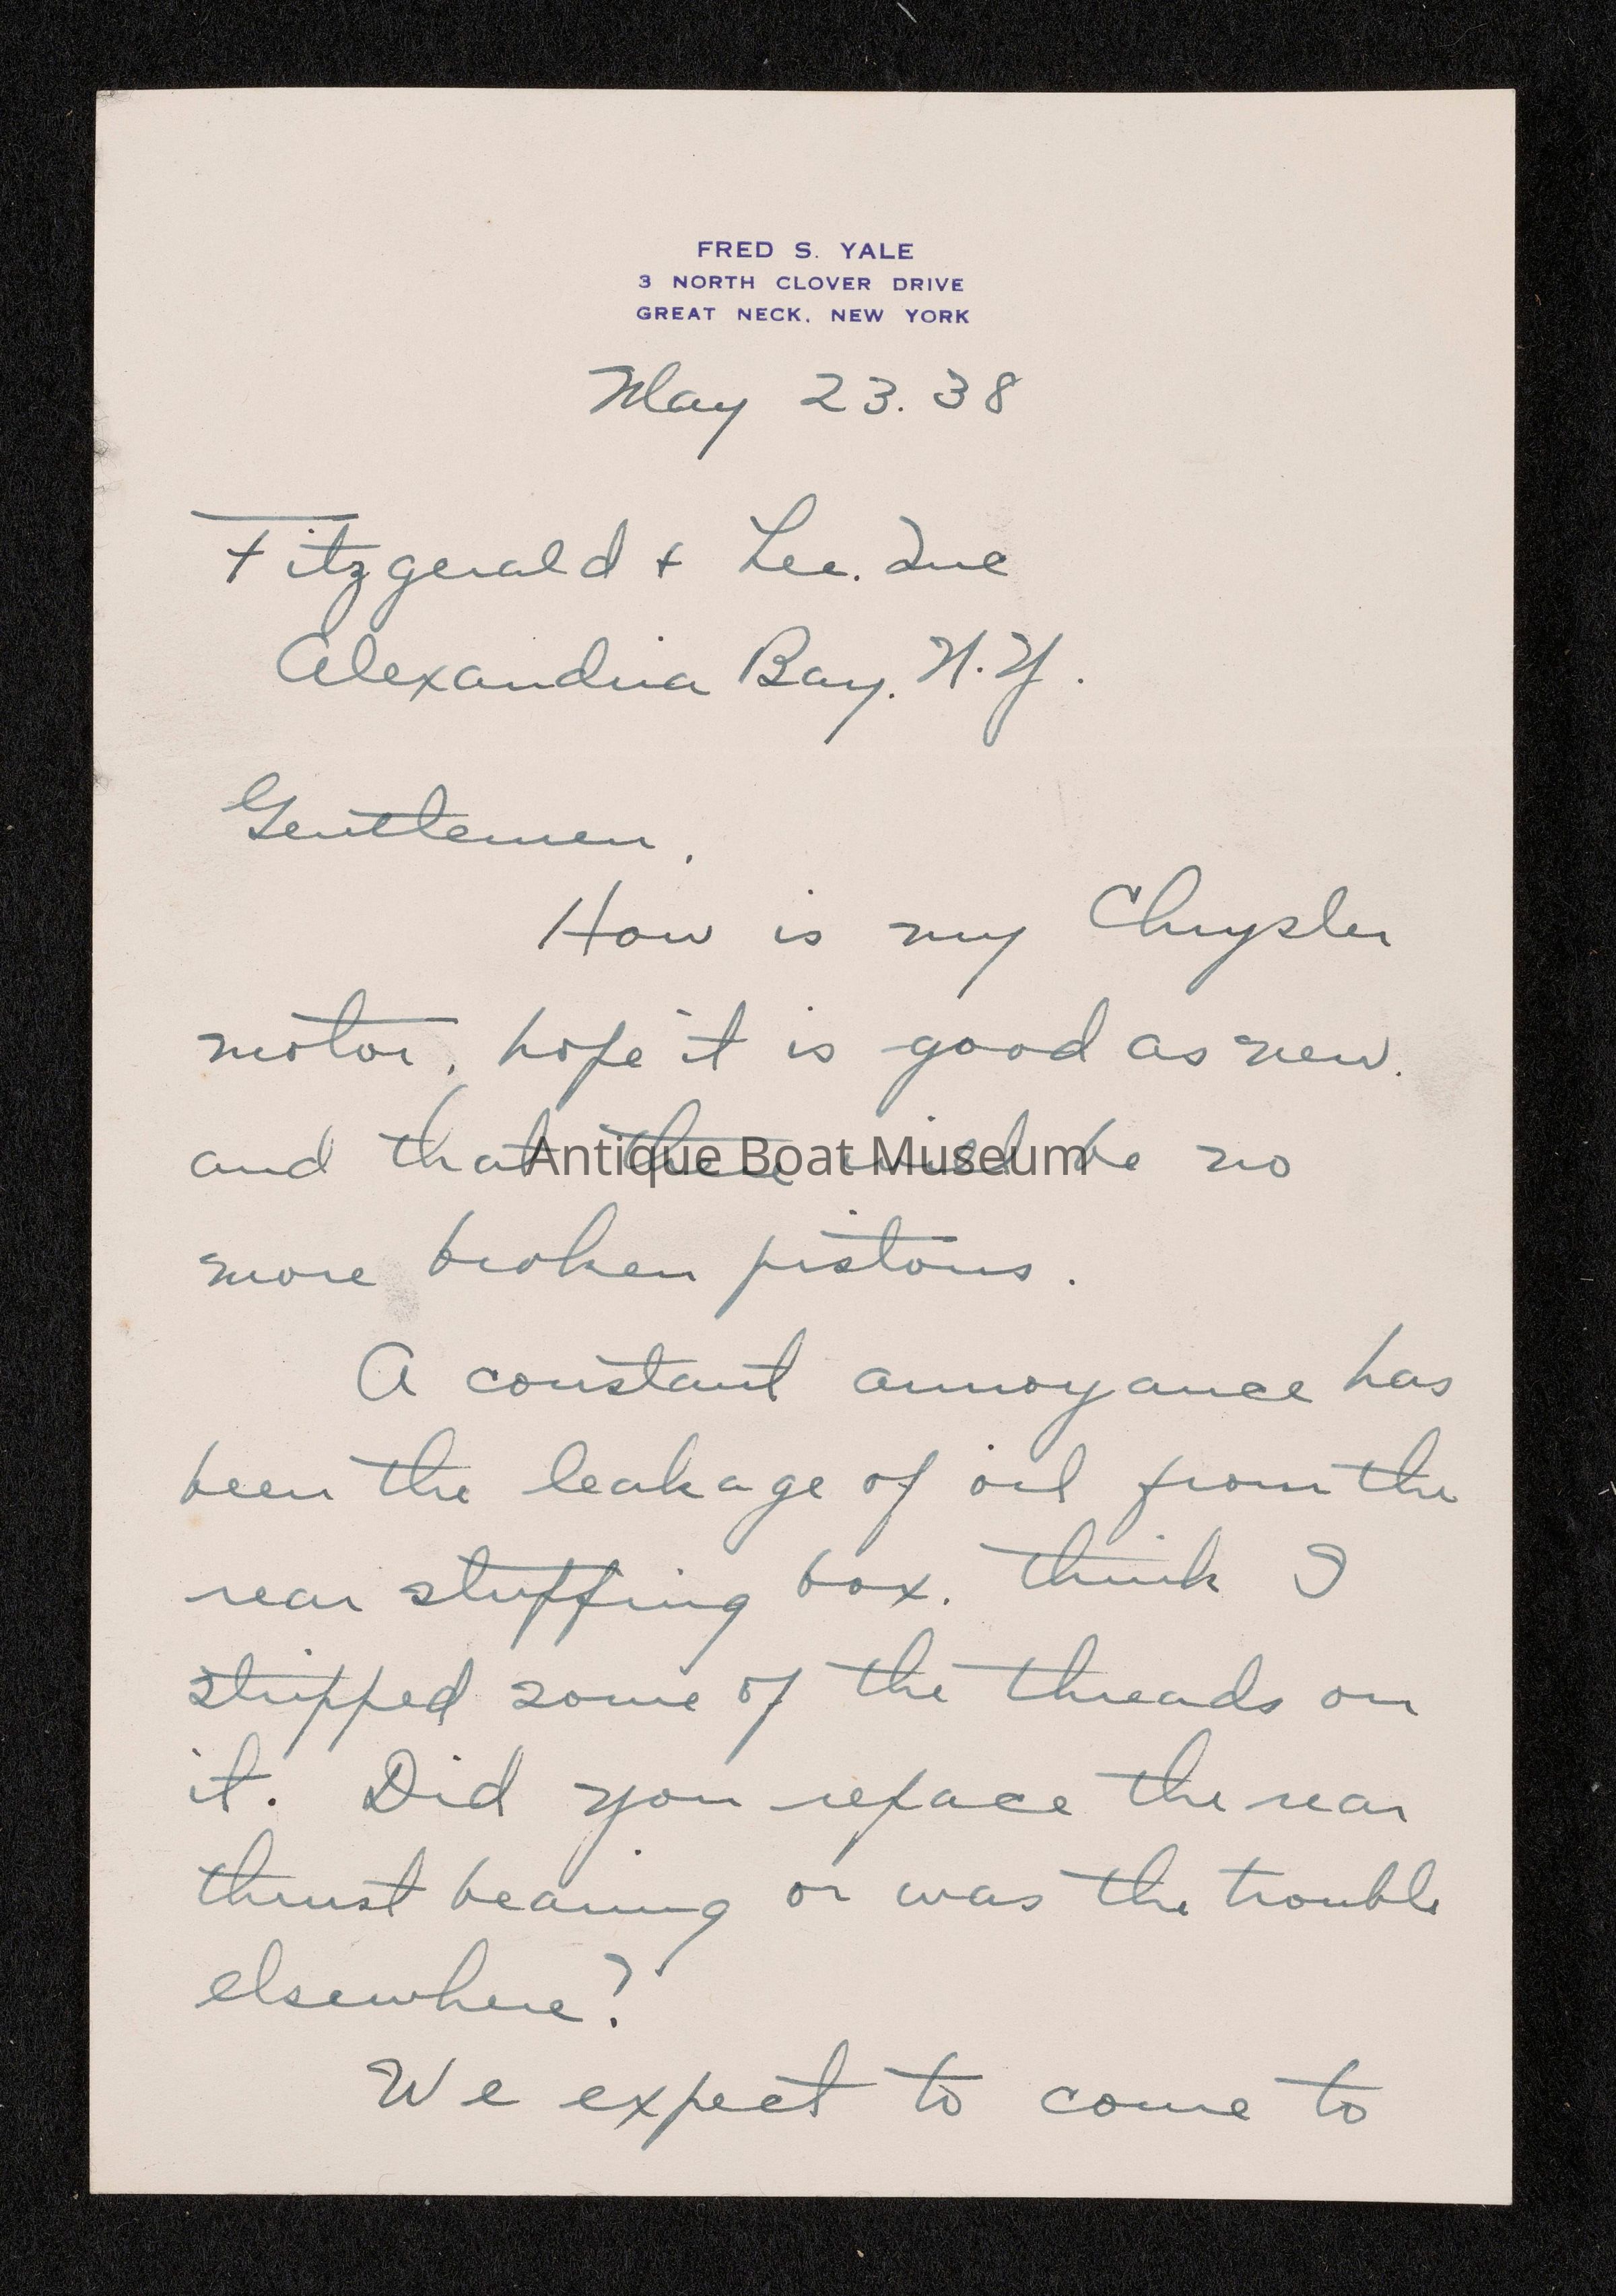 FRED S. YALE
3 NORTH CLOVER DRIVE
GREAT NECK, NEW YORK
May 23. 38
Fitzgerald + Lee. Inc
Alexandria Bay. N.Y.
Gentlemen,
How is my Chrysler
motor, hope it is good as new.
and that there will be no
more broken pistons.
A constant annoyance has
been the leakage of oil from the
rear stuffing box. think I
stripped some of the threads on
it. Did you reface the rear
thrust bearing or was the trouble
elsewhere?
We expect to come to
Antique Boat Museum